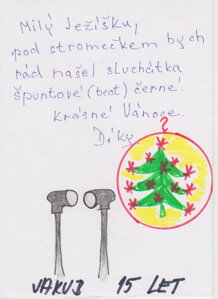 Milý Ježíšku,
pod stromečkem bych
rád našel sluchátka
špuntové (beat) černé!
Krásné Vánoce.
Díky
JAKUB 15 LET